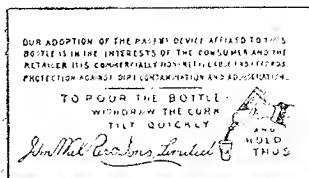 OUR ADOPTION OF THE PATENT DEVICE AFFIXED TO THIS
BOTTLE IS IN THE INTERESTS OF THE CONSUMER AND THE
RETAILER IT IS COMMERCIALLY NON-REFILLABLE AND AFFORDS
PROTECTION AGAINST DIRT CONTAMINATION AND ADULTERATION.
TO POUR THE BOTTLE
WITHDRAW THE CORK
TILT QUICKLY
AND
HOLD
THUS
Sons, Limited